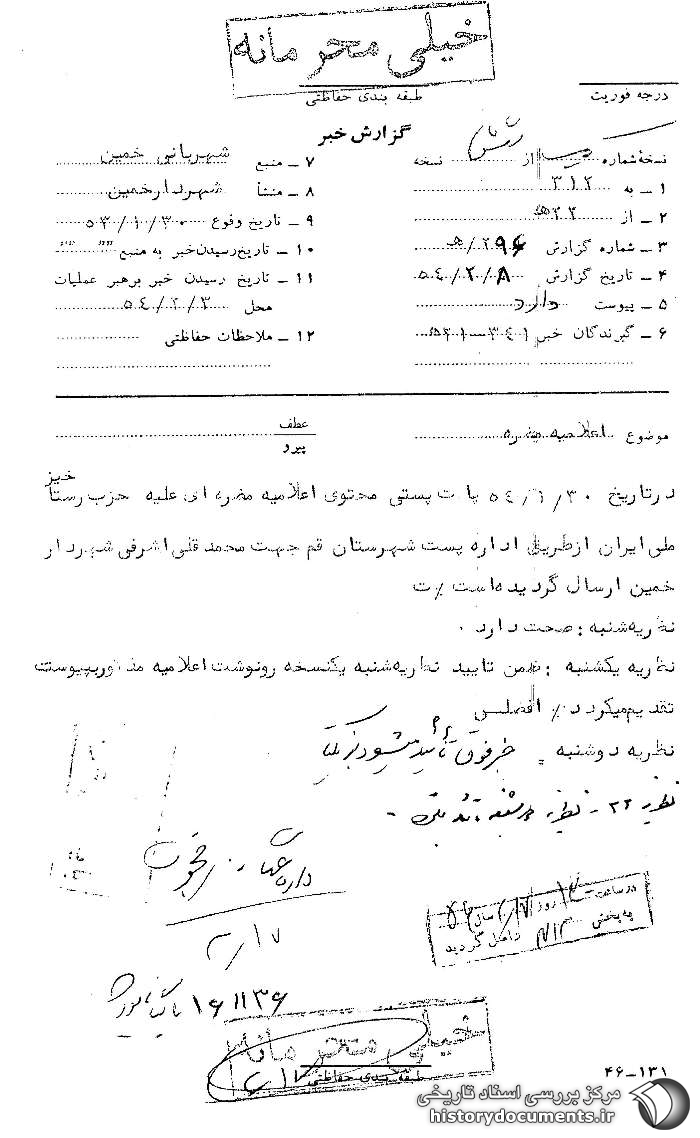 خیلی محرمانه
طبقه بندی حفاظتی
درجه فوریت
گزارش خبر
نسخهٔ شماره از نسخه
۱ ـ به ۳۱۲
۲ ـ از ۲۲ ه‍
۳ ـ شماره گزارش ۲۹۶/ه‍
۴ ـ تاریخ گزارش ۵۴/۲/۸
۵ ـ پیوست دارد
۶ ـ گیرندگان خبر ۳۴۱ـ
۷ ـ منبع شهربانی خمین
۸ ـ منشأ شهردارخمین
۹ ـ تاریخ وقوع ۵۴/۱/۳۰
۱۰ ـ تاریخ رسیدن خبر به منبع " "
۱۱ ـ تاریخ رسیدن خبر برهبر عملیات
محل ۵۴/۲/۳
۱۲ ـ ملاحظات حفاظتی
موضوع اعلامیه مضره
عطف
پیرو
درتاریخ ۵۴/۱/۳۰ پاکت پستی محتوی اعلامیه مضره ای علیه حزب رستاخیز
ملی ایران ازطریق اداره پست شهرستان قم جهت محمد قلی اشرفی شهردار
خمین ارسال گردیده‌است
نظریه‌شنبه : صحت دارد .
نظریه یکشنبه : ضمن تایید نظریه‌شنبه یکنسخه رونوشت اعلامیه مذکوربپیوست
تقدیم‌میگردد٪ افضلی
نظریه دوشنبه خبر فوق تأیید میشود
نظریه ۲۲ ـ نظریه
۲/۱۷
در ساعت روز سال ۵۴
به بخش ۳۱۲ داخل گردید
۱۶۱۱۳۶
خیلی محرمانه
طبقه بندی حفاظتی
۴۶-۱۳۱
مرکز بررسی اسناد تاریخی
historydocuments.ir